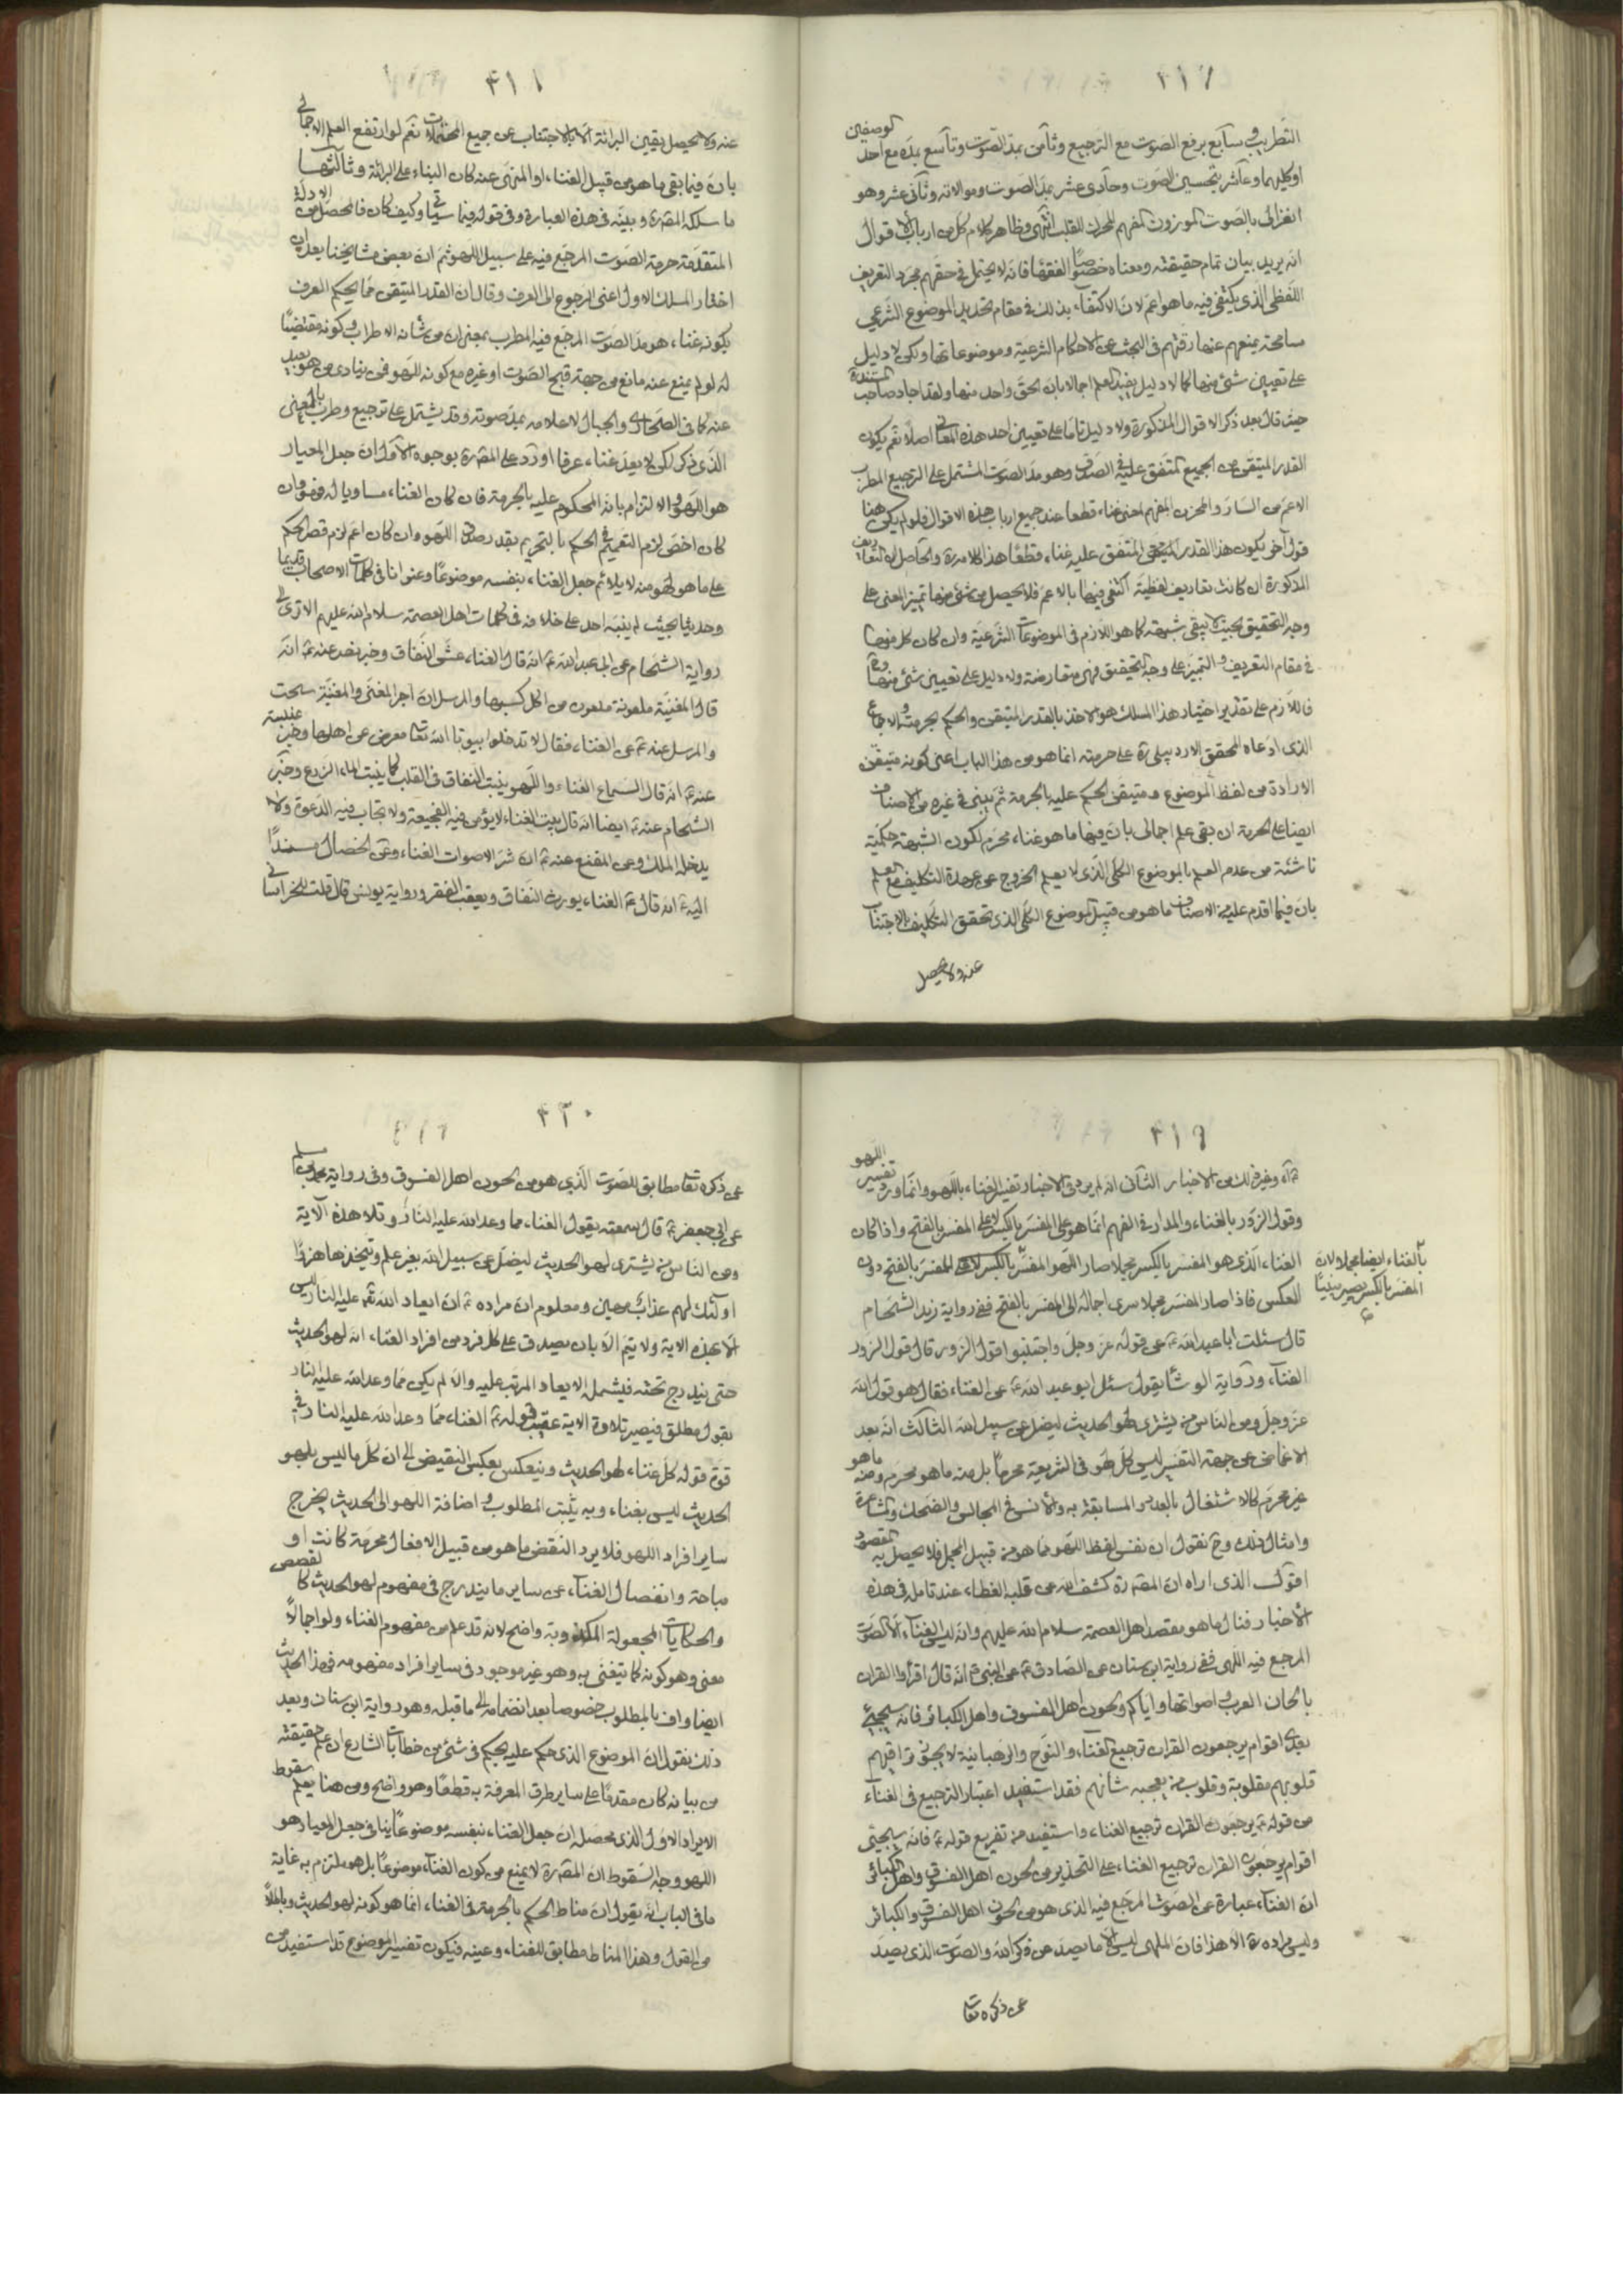 ٤١٧
التطريب وسابع برفع الصوت مع الترجيع وثامن بمدّ الصوت وتاسع بمده مع احد الوصفين
او كليهما وعاشر بتحسين الصوت وحادى عشر بمدّ الصوت وموالاته وثانى عشر وهو
الغزالى بالصوت الموزون المفهم المحرك للقلب انتهى وظاهر كلام كل من ارباب الاقوال
انه يريد بيان تمام حقيقته ومعناه خصوصًا الفقهاء فانه لا يحتمل فى حقهم مجرد التعريف
اللفظى الذى يكتفى فيه ما هو اعم لان الاكتفاء بذلك فى مقام تحديد الموضوع الشرعي
مسامحة يمنعهم عنها دقتهم فى البحث عن الاحكام الشرعية وموضوعاتها ولكن لا دليل
على تعيين شئ منها كما لا دليل يفيد العلم اجمالا بان الحق واحد منها ولقد اجاد صاحب المستند ره
حيث قال بعد ذكر الاقوال المذكورة ولا دليل تاما على تعيين احد هذه المعانى اصلا نعم يكون
القدر المتيقن من الجميع المتفق عليه فى الصدق وهو مد الصوت المشتمل على الترجيع المطرب
الاعم من السار والمحزن المفهم لمعنى غناء قطعا عند جميع ارباب هذه الاقوال فلو لم يكن هنا
قول آخر يكون هذا القدر المتيقن المتفق عليه غناء قطعًا هذا كلامه ره والحاصل ان التعاريف
المذكورة ان كانت تعاريف لفظية اكتفى فيها بالاعم فلا يحصل من شئ منها تميز المعنى على
وجه التحقيق بحيث لا يبقى شبهة كما هو اللازم فى الموضوعات الشرعية وان كان كل منها
فى مقام التعريف والتميز على وجه التحقيق فهى متعارضة ولا دليل على تعيين شئ منها وح
فاللازم على تقدير اختيار هذا المسلك هو الاخذ بالقدر المتيقن والحكم بحرمته والاجماع
الذى ادعاه المحقق الاردبيلى ره على حرمته انما هو من هذا الباب اعنى كونه متيقن
الارادة من لفظ الموضوع ومتيقن الحكم عليه بالحرمة ثم يبنى فى غيره من الاصناف
ايضا على الحرمة ان بقى علم اجمالى بان فيها ما هو غناء محرم لكون الشبهة حكمية
ناشئة من عدم العلم بالموضوع الكلى الذى لا يعلم الخروج عن عهدة التكليف مع العلم
بان فيما اقدم عليه من الاصناف ما هو من قبيل الموضوع الكلى الذى تحقق التكليف بالاجتناب
عنه ولا يحصل
٤١٨
عنه ولا يحصل يقين البرائة الا بالاجتناب عن جميع المحتملات نعم لو ارتفع العلم الاجمالى
بان فيما بقى ما هو من قبيل الغناء او المنهى عنه كان البناء على البرائة وثالثها
ما سلكه المصره وبينه فى هذه العبارة وفى قوله فيما سياتى وكيف كان فالمحصل من الادلة
المتقدمة حرمة الصوت المرجع فيه على سبيل اللهو ثم ان بعض مشايخنا بعد ان
اختار المسلك الاول اعنى الرجوع الى العرف وقال ان القدر المتيقن مما يحكم العرف
بكونه غناء هو مد الصوت المرجع فيه المطرب بمعنى ان من شانه الاطراب وكونه مقتضيًا
له لو لم يمنع عنه مانع من جهة قبح الصوت او غيره مع كونه للهو فمن ينادى من هو بعيد
عنه كما فى الصحارى والجبال لاعلامه بمد صوته وقد يشتمل على ترجيع وطرب بالمعنى
الذى ذكر لكن لا يعد غناء عرفا اورد على المصره بوجوه الاول ان جعل المعيار
هو اللهو والالتزام بانه المحكوم عليه بالحرمة فان كان الغناء مساويا له فهو وان
كان اخص لزم التعميم فى الحكم بالتحريم بقدر صدق اللهو وان كان اعم لزم قصر الحكم
على ما هو لهو منه لا يلائم جعل الغناء بنفسه موضوعًا وعنوانا فى كلمات الاصحاب قديما
وحديثا بحيث لم ينبه احد على خلافه فى كلمات اهل العصمة سلام الله عليهم الا ترى الى
رواية الشحام عن ابى عبدالله ع انه قال الغناء عشّ النفاق وخبر نصر عنه ع انه
قال المغنية ملعونة ملعون من اكل كسبها والمرسل ان اجر المغنى والمغنية سحت
والمرسل عنه ع عن الغناء فقال لا تدخلوا بيوتا الله تعالى معرض عن اهلها وخبر عنبسة
عنه ع انه قال السماع الغناء واللهو ينبت النفاق فى القلب كما ينبت الماء الزرع وخبر
الشحام عنه ع ايضا انه قال بيت الغناء لا يؤمن فيه الفجيعة ولا تجاب فيه الدعوة ولا
يدخله الملك وعن المقنع عنه ع ان شر الاصوات الغناء وعن الخصال مسندًا
اليه ع انه قال ع الغناء يورث النفاق ويعقب الفقر ورواية يونس قال قلت للخراسانى
٤١٩
ع اه وغير ذلك من الاخبار الثانى انه لم يرد فى الاخبار تفسير الغناء باللهو وانما ورد تفسير اللهو
وقول الزور بالغناء والمدار فى الفهم انما هو على المفسر بالكسر لا على المفسر بالفتح واذا كان
الغناء الذى هو المفسر بالكسر مجملا صار اللهو المفسر بالغناء ايضا مجملا لان المفسر بالكسر يصير مبينًا للمفسر بالفتح دون
العكس فاذا صار المفسر مجملا سرى اجماله الى المفسر بالفتح ففى رواية زيد الشحام
قال سئلت ابا عبدالله ع عن قوله عز وجل واجتنبوا قول الزور قال قول الزور
الغناء ورواية الوشّا يقول سئل ابو عبد الله ع عن الغناء فقال هو قول الله
عز وجل ومن الناس من يشترى لهو الحديث ليضل عن سبيل الله الثالث انه بعد
الاغماض عن جهة التفسير ليس كل لهو فى الشريعة محرما بل منه ما هو محرم ومنه ما هو
غير محرم كالاشتغال بالعدو والمسابقة به والانس فى المجالس والضحك والمشاعرة
وامثال ذلك وح نقول ان نفس لفظ اللهو مما هو من قبيل المجمل فلا يحصل به المقصود
اقول الذى اراه ان المصره كشف الله عن قلبه الغطاء عند تامله فى هذه
الاخبار فنال ما هو مقصد اهل العصمة سلام الله عليهم وانه ليس الغناء الا الصوت
المرجع فيه اللهى ففى رواية ابن سنان عن الصادق ع عن النبى ص انه قال اقرأوا القران
بالحان العرب واصواتها واياكم ولحون اهل الفسوق واهل الكبائر فانه سيجيئ
بعدى اقوام يرجعون القران ترجيع الغناء والنوح والرهبانية لا يجوز تراقيهم
قلوبهم مقلوبة وقلوب من يعجبه شانهم فقد استفيد اعتبار الترجيع فى الغناء
من قوله ع يرجعون القران ترجيع الغناء واستفيد من تفريع قوله ع فانه سيجئى
اقوام يرجعون القران ترجيع الغناء على التحذير من لحون اهل الفسوق واهل الكبائر
ان الغناء عبارة عن الصوت المرجع فيه الذى هو من لحون اهل الفسوق والكبائر
وليس مراده ره الا هذا فان الملهى ليس الا ما يصد عن ذكر الله والصوت الذى يصد
عن ذكره تعالى
٤٢٠
عن ذكره تعالى مطابق للصوت الذى هو من لحون اهل الفسوق وفى رواية محمد بن مسلم
عن ابى جعفر ع قال سمعته يقول الغناء مما وعد الله عليه النار وتلا هذه الآية
ومن الناس من يشترى لهو الحديث ليضل عن سبيل الله بغير علم ويتخذها هزوا
اولئك لهم عذاب مهين ومعلوم ان مراده ع ان ايعاد الله تعالى عليه النار ليس
الا بهذه الاية ولا يتم الا بان يصدق على كل فرد من افراد الغناء انه لهو الحديث
حتى يندرج تحته فيشمله الايعاد المرتب عليه والا لم يكن مما وعد الله عليه النار
بقول مطلق فيصير تلاوة الاية عقيب قوله ع الغناء مما وعد الله عليه النار فى
قوة قوله كل غناء لهو الحديث وينعكس بعكس النقيض الى ان كل ما ليس بلهو
الحديث ليس بغناء وبه يثبت المطلوب واضافة اللهو الى الحديث يخرج
ساير افراد اللهو فلا يرد النقض ما هو من قبيل الافعال محرمة كانت او
مباحة وانفصال الغناء عن ساير ما يندرج فى مفهوم لهو الحديث كالقصص
والحكايات المجعولة المكذوبة واضح لانه قد علم من مفهوم الغناء ولو اجمالًا
معنى وهو كونه كما يتغنى به وهو غير موجود فى ساير افراد مفهومه فهذا الحديث
ايضا واف بالمطلوب خصوصا بعد انضمامه الى ما قبله وهو رواية ابن سنان وبعد
ذلك نقول ان الموضوع الذى حكم عليه بحكم فى شئ من خطابات الشارع ان علم حقيقته
من بيانه كان مقدمًا على ساير طرق المعرفة به قطعًا وهو واضح ومن هنا يعلم سقوط
الايراد الاول الذى محصله ان جعل الغناء بنفسه موضوعًا ينافى جعل المعيار هو
اللهو ووجه السقوط ان المصره لا يمنع من كون الغناء موضوعا بل هو ملتزم به غاية
ما فى الباب انه يقول ان مناط الحكم بالحرمة فى الغناء انما هو كونه لهو الحديث وباطلًا
من القول وهذا المناط مطابق للغناء وعينه فيكون تفسير الموضوع قد استفيد من